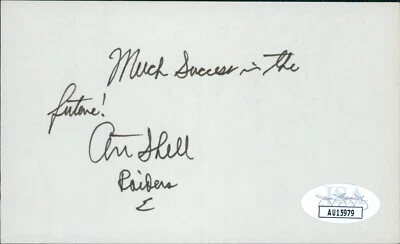 Much Success in the
future!
Art Shell
Raiders
JSA
AU15979